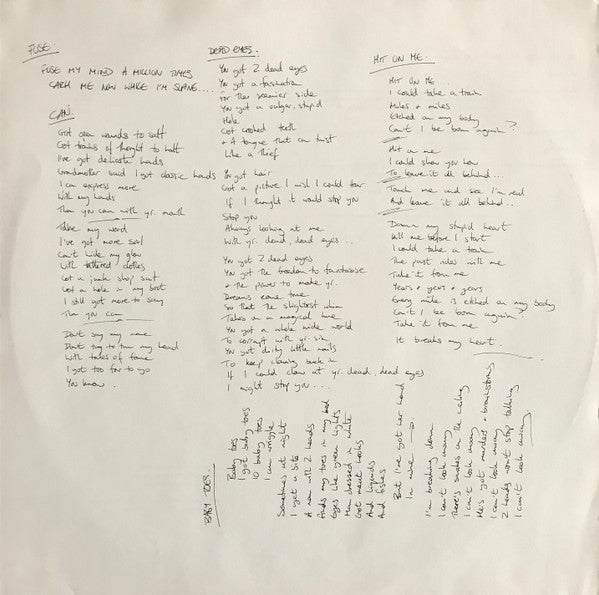 FUSE.
FUSE MY MIND A MILLION TIMES
CATCH ME NOW WHILE I'M
CAN.
Got open wounds to salt
Got trains of thought to halt
I've got delicate hands
Grandmother said I got classic hands
I can express more
With my hands
Than you can with yr. mouth
Take my word
I've got more soul
Can't hide my glow
With tattered clothes
Got a junk shop suit
Got a hole in my boot
I still got more to say
Than you can
Don't say my name
Don't try to turn my head
With tales of fame
I got too far to go
You know.
DEAD EYES.
You got 2 dead eyes
You got a fascination
For the seamier side
You got a vulgar, stupid
Hole
Got crooked teeth
& A tongue that can twist
Like a thief
You got hair
Got a picture I wish I could tear
If I thought it would stop you
Stop you
Always looking at me
With yr. dead, dead eyes...
You got 2 dead eyes
You got the freedom to fantasise
& the power to make yr.
Dreams come true
So that the slightest whim
Takes on a magical hue
You got a whole wide world
To corrupt with yr. sin
You got dirty little nails
To keep clawing back in
If I could claw at yr. dead, dead eyes
I might stop you....
HIT ON ME.
HIT ON ME...
I could take a train
Miles & miles
Etched on my body
Can't I be born again?
Hit on me
I could show you how
To leave it all behind...
Touch me and see I'm real
And leave it all behind..
Damn my stupid heart
Kill me before I start
I could take a train
The past rides with me
Take it from me
Years & years & years
Every mile is etched on my body
Can't I be born again?
Take it from me
It breaks my heart.
BABY TOES..
Baby toes
I got baby toes
10 baby toes
I can wriggle
Sometimes at night
I get a bite
A man with 2 heads
Finds my toes in my bed
Eyes like green lights
Man dressed in white
Got meat hooks
And liquids
And fishes
But I've got her hand
In mine
I'm breaking down
I can't look away
There's snakes on the ceiling
I can't look away
He's got murders & brainstorms
I can't look away
2 heads won't stop talking
I can't look away